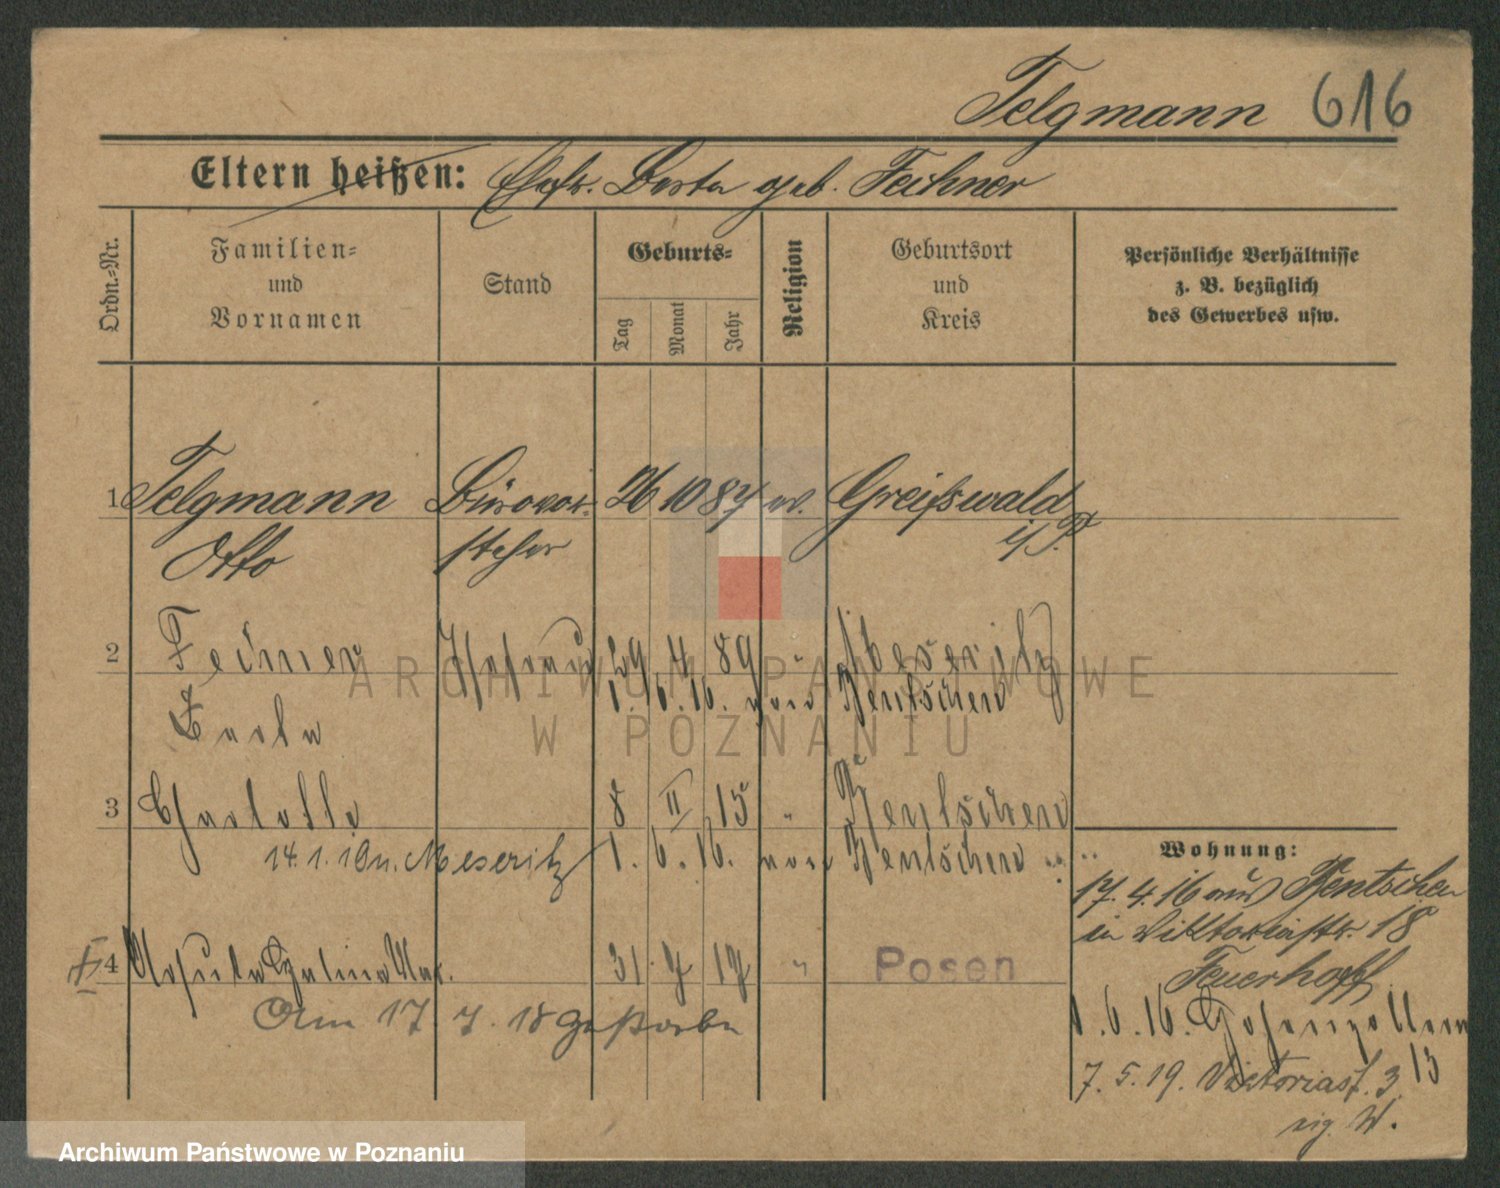 Telgmann 616
Eltern heißen: Ehefr. Berta geb. Fechner
Ordn.-Nr.
Familien-
und
Vornamen
Stand
Geburts-
Tag
Monat
Jahr
Religion
Geburtsort
und
Kreis
Persönliche Verhältnisse
z. B. bezüglich
des Gewerbes usw.
1 Telgmann Bürovor- 26 10 87 ev. Greifswald
Otto steher i/P.
2 Fechner Ehefrau 29 4 89 " Meseritz
1. 6. 16. nach Bentschen
Berta
3 Charlotte 8 II 15 " Bentschen
14. 1. 19 n. Meseritz 1. 6. 16. von Bentschen
Wohnung:
17. 4. 16 aus Bentschen
in Viktoriastr. 18
Feuerhoff
4 Ursula 31 7 17 " Posen
Am 17. 7. 18 gestorben
1. 6. 16. Hohenzollern
13
7. 5. 19. Viktoriast. 3
eig. W.
ARCHIWUM PAŃSTWOWE
W POZNANIU
Archiwum Państwowe w Poznaniu